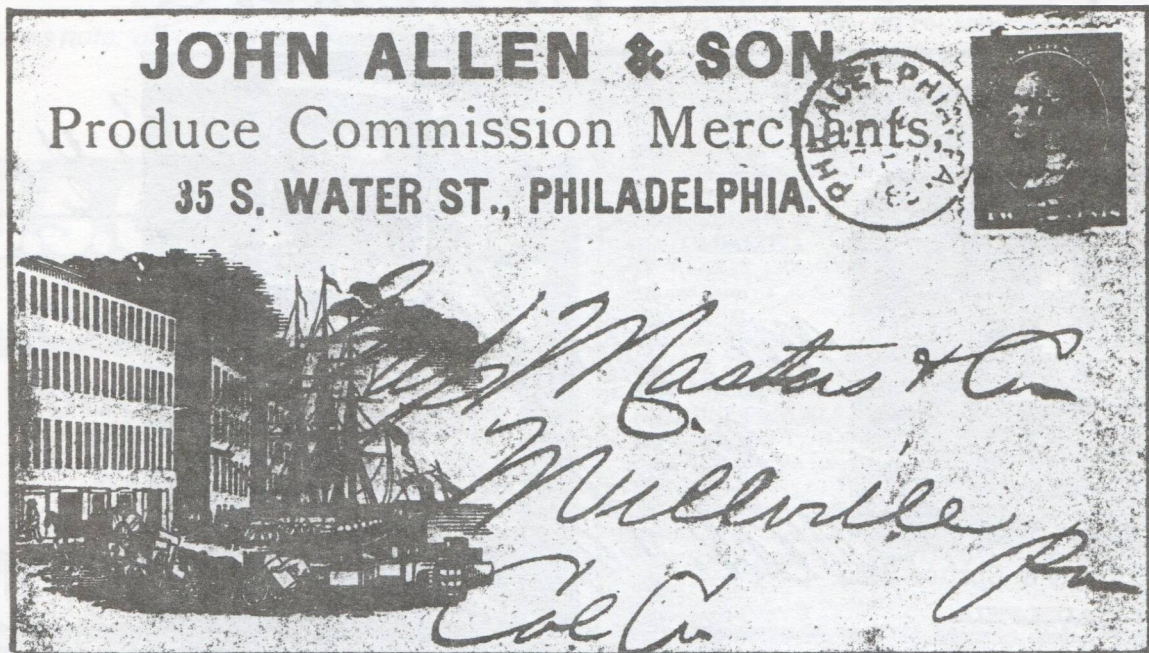 JOHN ALLEN & SON,
Produce Commission Merchants,
35 S. WATER ST., PHILADELPHIA.
PHILADELPHIA, PA.
Masters & Co
Millville
Pa
Col Co.